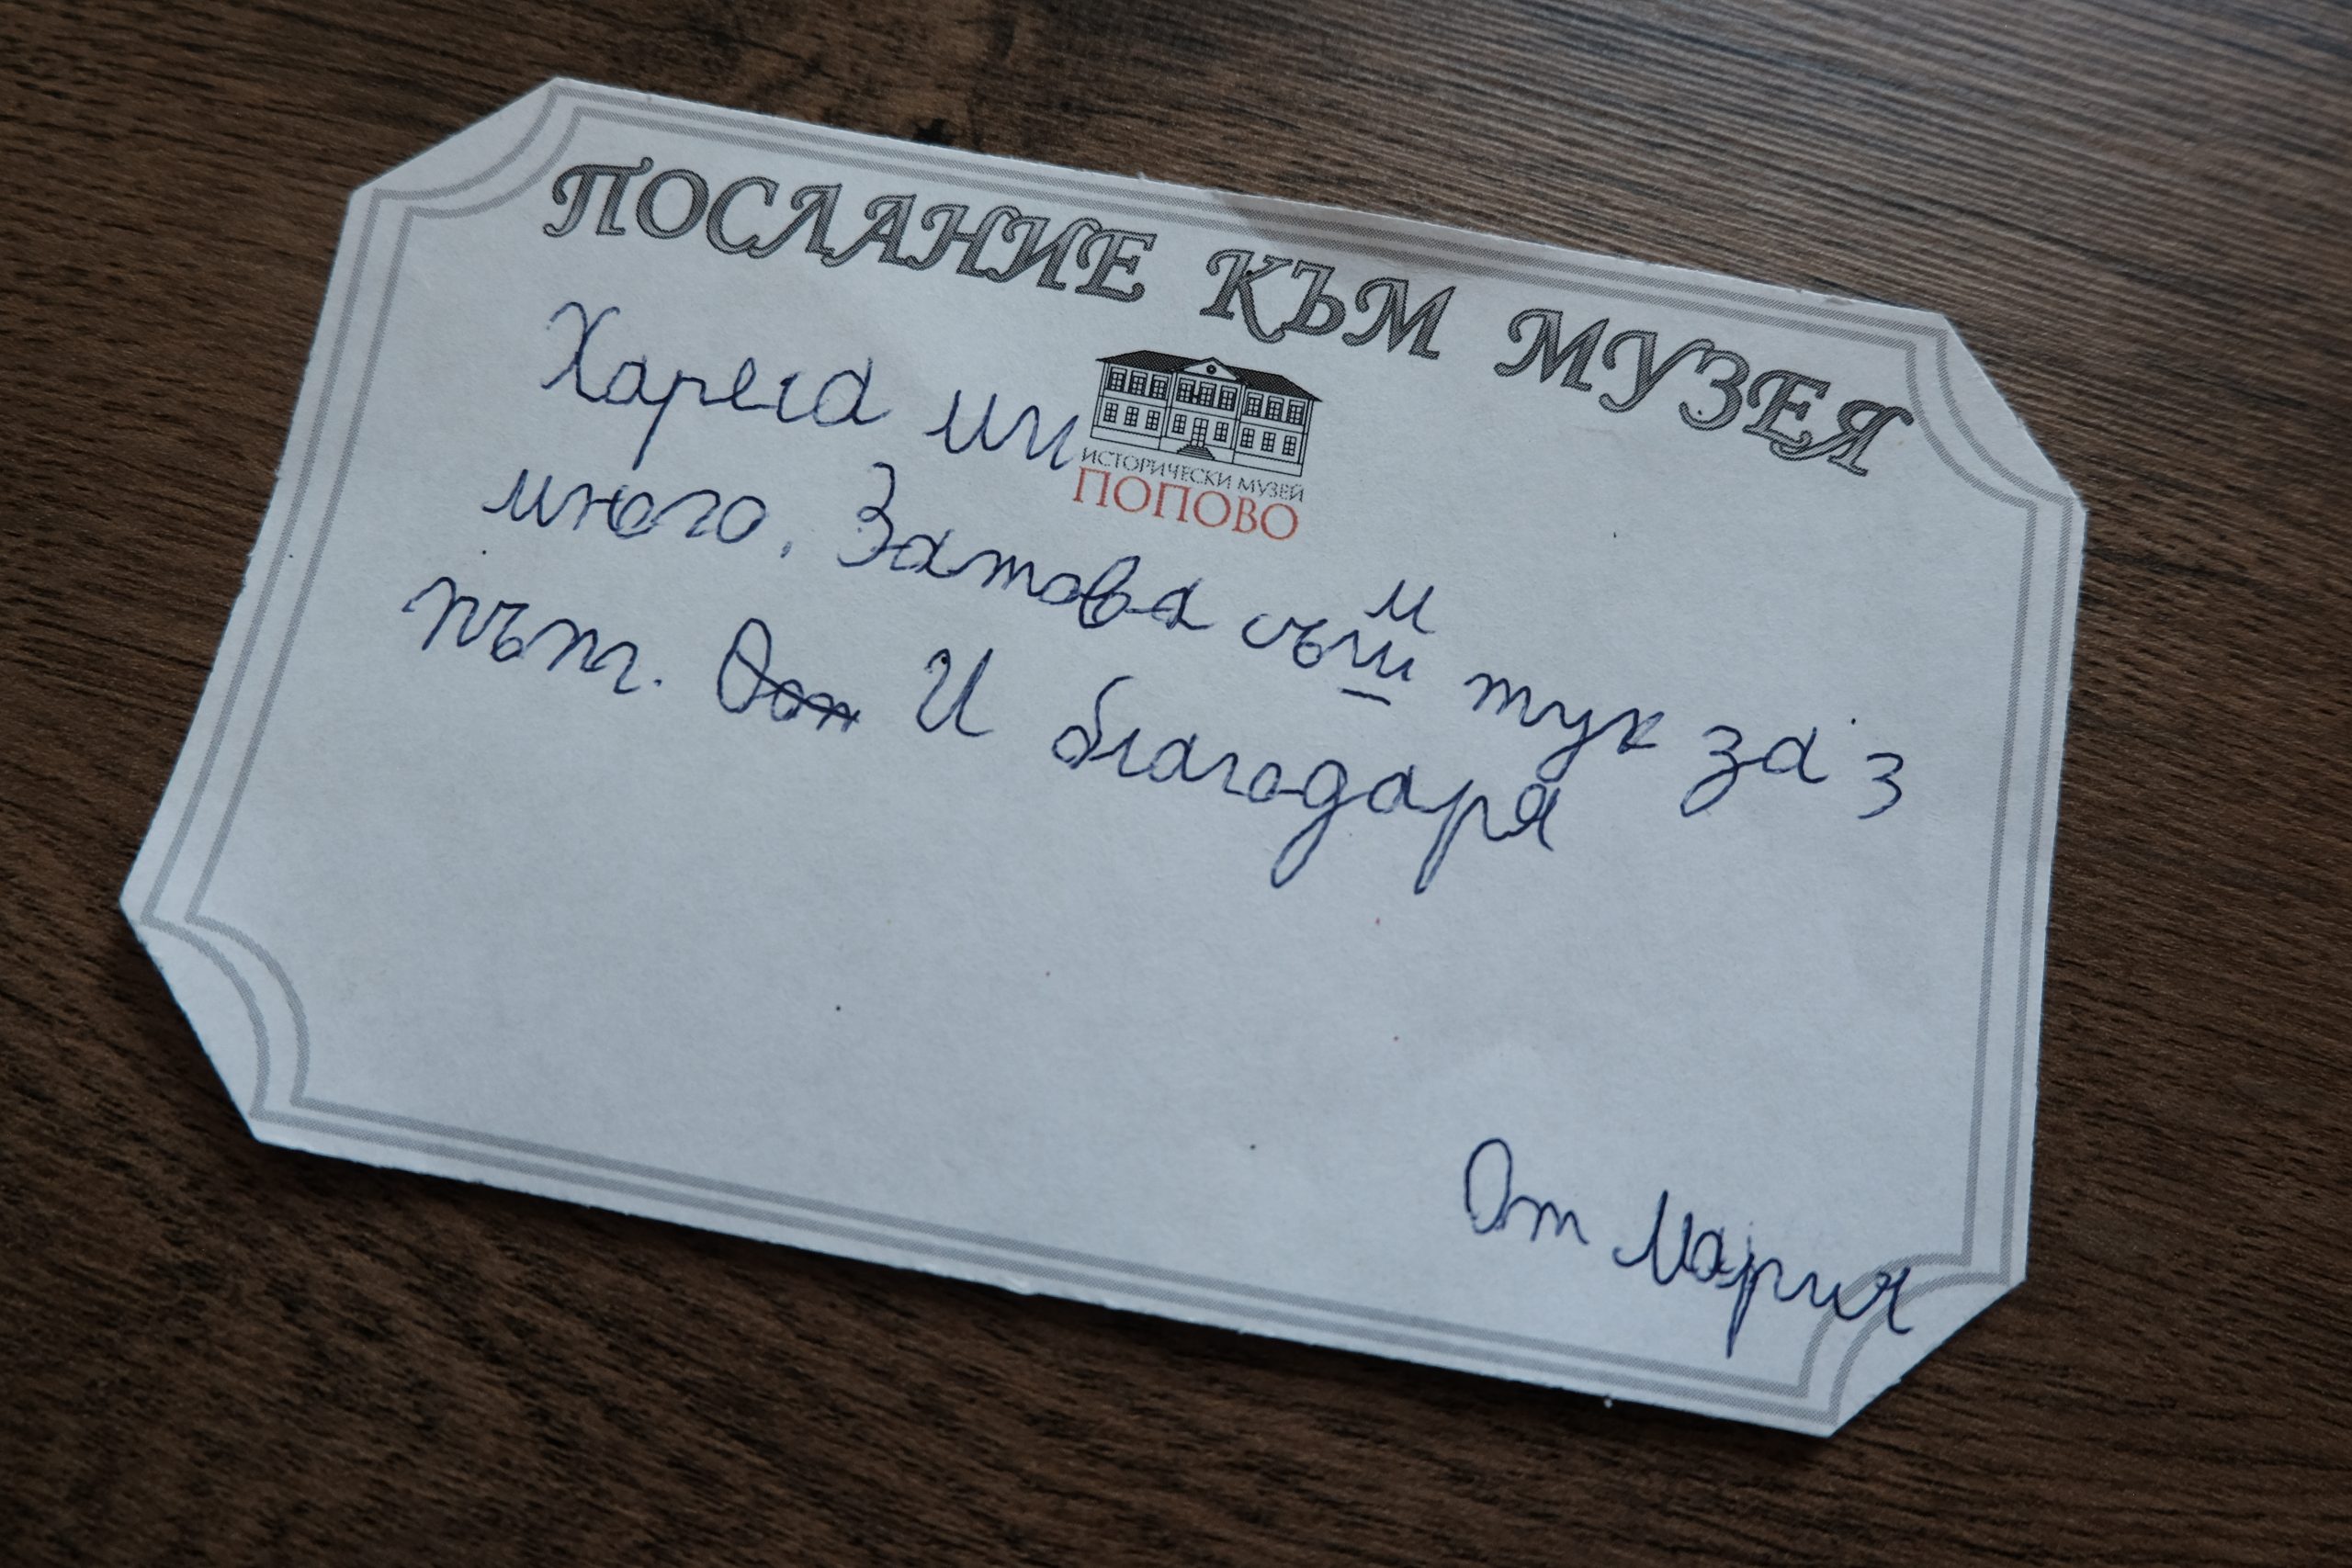 ПОСЛАНИЕ КЪМ МУЗЕЯ
ИСТОРИЧЕСКИ МУЗЕЙ
ПОПОВО
Хареса ми
много. Затова съм тук за 3
път. И благодаря
От Мария